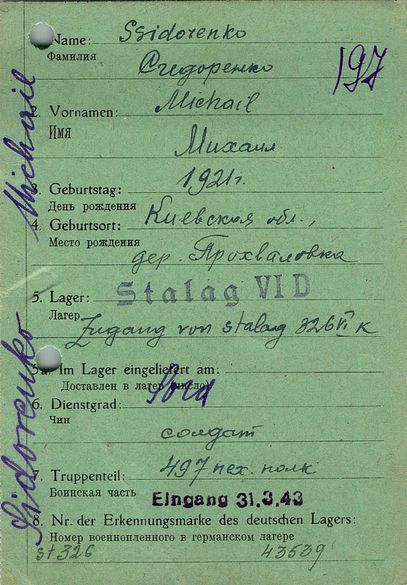 1. Name: Ssidorenko
Фамилия Сидоренко
197
2. Vornamen: Michail
Имя
Михаил
3. Geburtstag: 1921 г.
День рождения
4. Geburtsort: Киевская обл.,
Место рождения дер. Прохваловка
5. Lager: Stalag VI D
Лагерь
Zugang von Stalag 326 VI K
5a. Im Lager eingeliefert am:
Доставлен в лагерь (число)
6. Dienstgrad:
Чин
солдат
7. Truppenteil: 497 пех. полк
Воинская часть Eingang 31.3.43
8. Nr. der Erkennungsmarke des deutschen Lagers:
Номер военнопленного в германском лагере
St 326 43539
Ssidorenko Michail